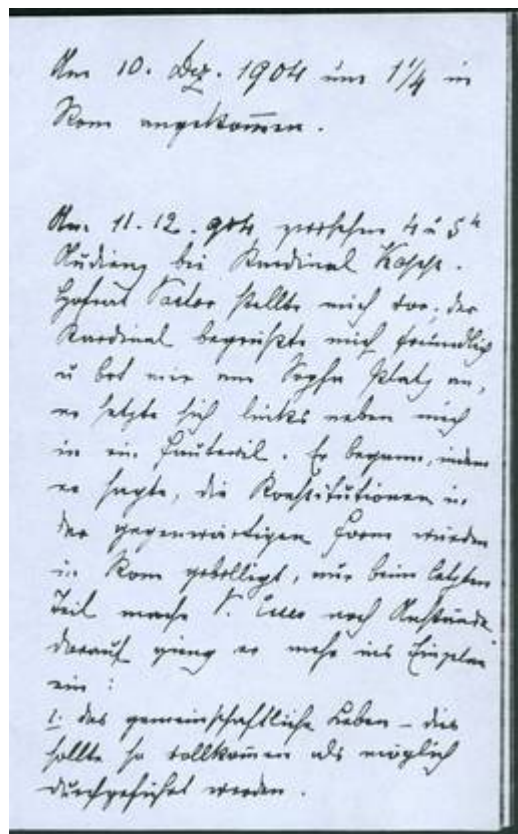 Am 10. Dez. 1904 um 1 1/4 in
Rom angekom̄en.
Am 11.12.904 zwischen 4 u 5h
Audienz bei Kardinal Kopp.
Hofrat stellte mich vor; der
Kardinal begrüßte mich freundlich
u bot mir am Sopha Platz an,
er setzte sich links neben mich
in ein Fauteuil. Er begann, indem
er sagte, die Konstitutionen in
der gegenwärtigen Form würden
in Rom gebilligt, nur beim letzten
Teil mache P. noch Anstände
darauf gieng er mehr ins Einzelne
ein:
1. das gemeinschaftliche Leben – dies
sollte so vollkom̄en als möglich
durchgeführt werden.